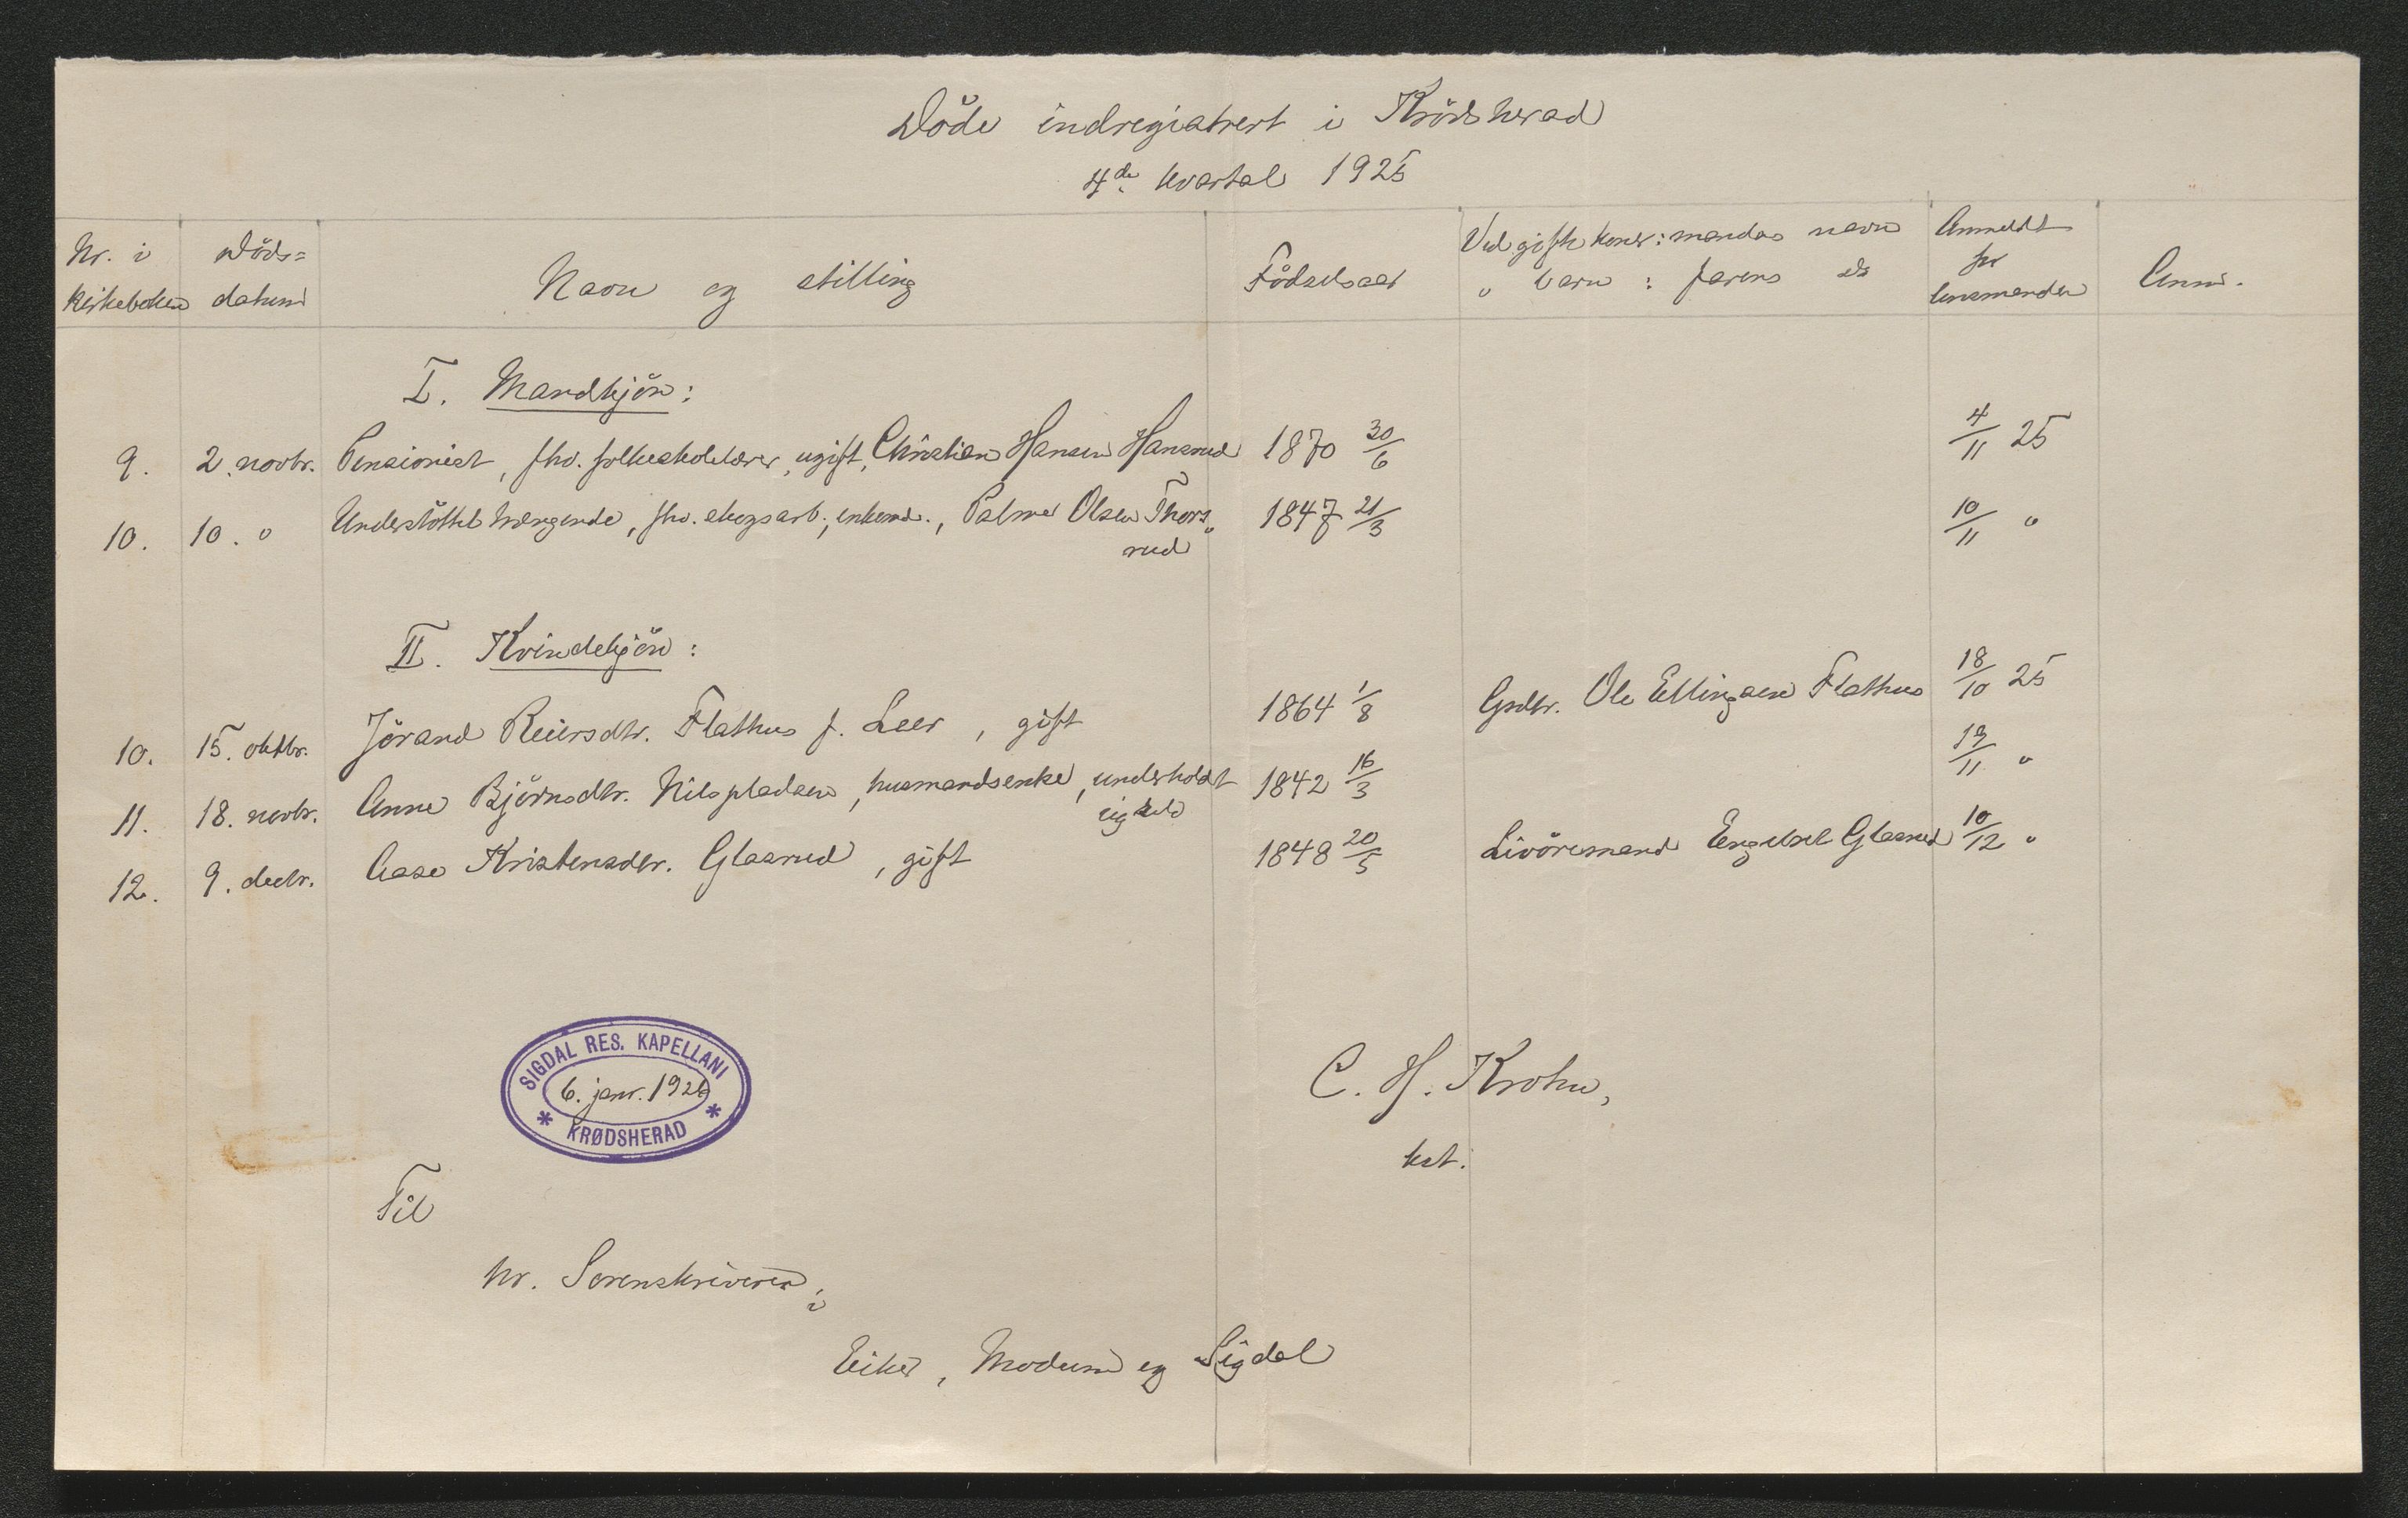 Döde indregistrert i Krödsherad
4de kvartal 1925
Nr. i kirkeboken
Döds= datum
Navn og stilling
Födselsaar
Ved gifte koner: mandas navn
" barn : farens do
Anmeldt for lensmanden
Anm.
I. Mandkjön:
9. 2. novbr. Pensionist, fhv. folkeskolelærer, ugift, Christian Hansen Hansrud 1870 30/6 4/11 25
10. 10. " Understöttelsetrængende, fhv. skogsarb., enkemd., Palmer Olsen Thors„ 1847 21/3 10/11 "
rud
II. Kvindekjön:
10. 15. oktbr. Jörand Reiersdtr. Flathus f. Leer, gift 1864 1/8 Grdbr. Ole Ellingsen Flathus 18/10 25
11. 18. novbr. Anne Björnsdtr. Nilspladsen, husmandsenke, underholdt 1842 16/3 19/11 "
sig selv
12. 9. decbr. Aase Kristensdtr. Glasrud, gift 1848 20/5 Livöresmand Engebret Glasrud 10/12 "
SIGDAL RES. KAPELLANI
6. janr. 1926
* KRØDSHERAD *
C. H. Krohn,
kst.
Til
hr. Sorenskriveren i
Eiker, Modum og Sigdal